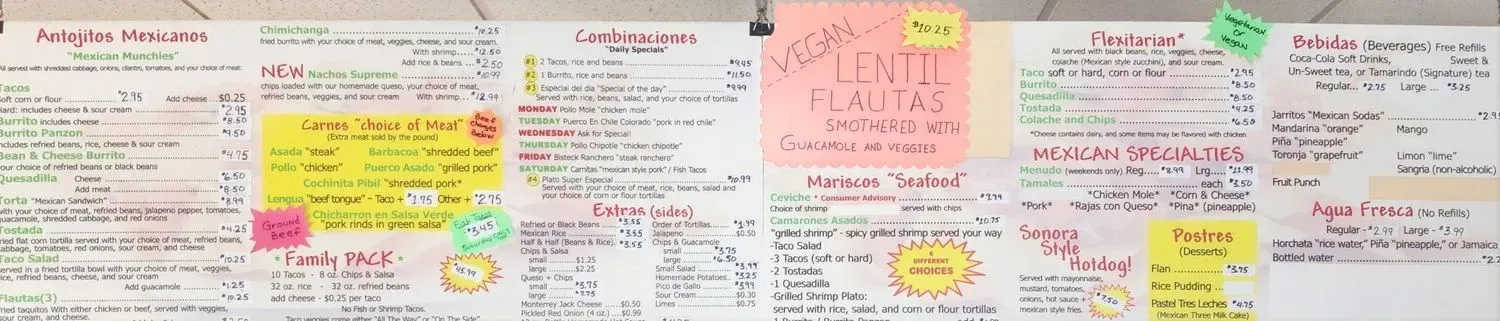 Antojitos Mexicanos
"Mexican Munchies"
All served with shredded cabbage, onions, cilantro, tomatoes, and your choice of meat:
Tacos
Soft corn or flour $2.95 Add cheese $0.25
Hard: includes cheese & sour cream $2.95
Burrito includes cheese $8.50
Burrito Panzon $9.50
includes refried beans, rice, cheese & sour cream
Bean & Cheese Burrito $4.75
your choice of refried beans or black beans
Quesadilla Cheese $6.50
Add meat $8.50
Torta "Mexican Sandwich" $8.99
with your choice of meat, refried beans, jalapeno pepper, tomatoes,
guacamole, shredded cabbage, and red onions
Tostada $4.25
fried flat corn tortilla served with your choice of meat, refried beans,
cabbage, tomatoes, red onions, sour cream, and cheese
Taco Salad $10.25
served in a fried tortilla bowl with your choice of meat, veggies,
rice, refried beans, cheese, and sour cream
Add guacamole $1.25
Flautas(3) $10.25
fried taquitos With either chicken or beef, served with veggies,
sour cream, and cheese.
Chimichanga $10.25
fried burrito with your choice of meat, veggies, cheese, and sour cream.
With shrimp $12.50
Add rice & beans $2.50
NEW Nachos Supreme $10.99
chips loaded with our homemade queso, your choice of meat,
refried beans, veggies, and sour cream With shrimp $12.99
Carnes "choice of Meat"
(Extra meat sold by the pound)
Beef
charges
Below
Asada "steak" Barbacoa "shredded beef"
Pollo "chicken" Puerco Asado "grilled pork"
Cochinita Pibil "shredded pork"
Lengua "beef tongue" - Taco + $1.75 Other + $2.75
Chicharron en Salsa Verde
"pork rinds in green salsa"
Ground
Beef
Fish Tacos
$3.45
Saturday ONLY
* Family PACK *
10 Tacos - 8 oz. Chips & Salsa
32 oz. rice - 32 oz. refried beans
add cheese - $0.25 per taco
$45.99
No Fish or Shrimp Tacos.
Taco veggies come either "All The Way" or "On The Side"
Combinaciones
"Daily Specials"
#1 2 Tacos, rice and beans $9.45
#2 1 Burrito, rice and beans $11.50
#3 Especial del dia "Special of the day" $9.99
Served with rice, beans, salad, and your choice of tortillas
MONDAY Pollo Mole "chicken mole"
TUESDAY Puerco En Chile Colorado "pork in red chile"
WEDNESDAY Ask for Special!
THURSDAY Pollo Chipotle "chicken chipotle"
FRIDAY Bisteck Ranchero "steak ranchero"
SATURDAY Carnitas "mexican style pork" / Fish Tacos
#4 Plato Super Especial $10.99
Served with your choice of meat, rice, beans, salad and
your choice of corn or flour tortillas
Extras (sides)
Refried or Black Beans $3.55
Mexican Rice $3.55
Half & Half (Beans & Rice). $3.55
Chips & Salsa
small $1.25
large $2.25
Queso + Chips
small $3.75
large $7.75
Monterrey Jack Cheese $0.50
Pickled Red Onion (4 oz.) $0.99
Order of Tortillas $1.99
Jalapeno $0.50
Chips & Guacamole
small $3.75
large $6.50
Small Salad $3.99
Homemade Potatoes $3.25
Pico de Gallo $3.99
Sour Cream $0.30
Limes $0.75
VEGAN
$10.25
LENTIL
FLAUTAS
SMOTHERED WITH
GUACAMOLE AND VEGGIES
Mariscos "Seafood"
Ceviche * Consumer Advisory $2.99
Choice of shrimp served with chips
Camarones Asados $10.75
"grilled shrimp" - spicy grilled shrimp served your way
-Taco Salad
-3 Tacos (soft or hard)
-2 Tostadas
-1 Quesadilla
-Grilled Shrimp Plato:
served with rice, salad, and corn or flour tortillas
6
DIFFERENT
CHOICES
Flexitarian*
Vegetarian
or
Vegan
All served with black beans, veggies, cheese,
colache (Mexican style zucchini), and sour cream.
Taco soft or hard, corn or flour $2.95
Burrito $8.50
Quesadilla $8.50
Tostada $4.25
Colache and Chips $6.50
*Cheese contains dairy, and some items may be flavored with chicken
MEXICAN SPECIALTIES
Menudo (weekends only) Reg $8.99 Lrg $11.99
Tamales each $3.50
*Chicken Mole* *Corn & Cheese*
*Pork* *Rajas con Queso* *Pina* (pineapple)
Sonora
Style
Hotdog!
Served with mayonnaise,
mustard, tomatoes,
onions, hot sauce +
mexican style fries.
$7.50
Postres
(Desserts)
Flan $3.75
Rice Pudding
Pastel Tres Leches $4.75
(Mexican Three Milk Cake)
Bebidas (Beverages) Free Refills
Coca-Cola Soft Drinks, Sweet &
Un-Sweet tea, or Tamarindo (Signature) tea
Regular... $2.75 Large ... $3.25
Jarritos "Mexican Sodas"
Mandarina "orange" Mango
Piña "pineapple"
Toronja "grapefruit" Limon "lime"
Sangria (non-alcoholic)
Fruit Punch
Agua Fresca (No Refills)
Regular - $2.99 Large - $3.99
Horchata "rice water," Piña "pineapple," or Jamaica
Bottled water